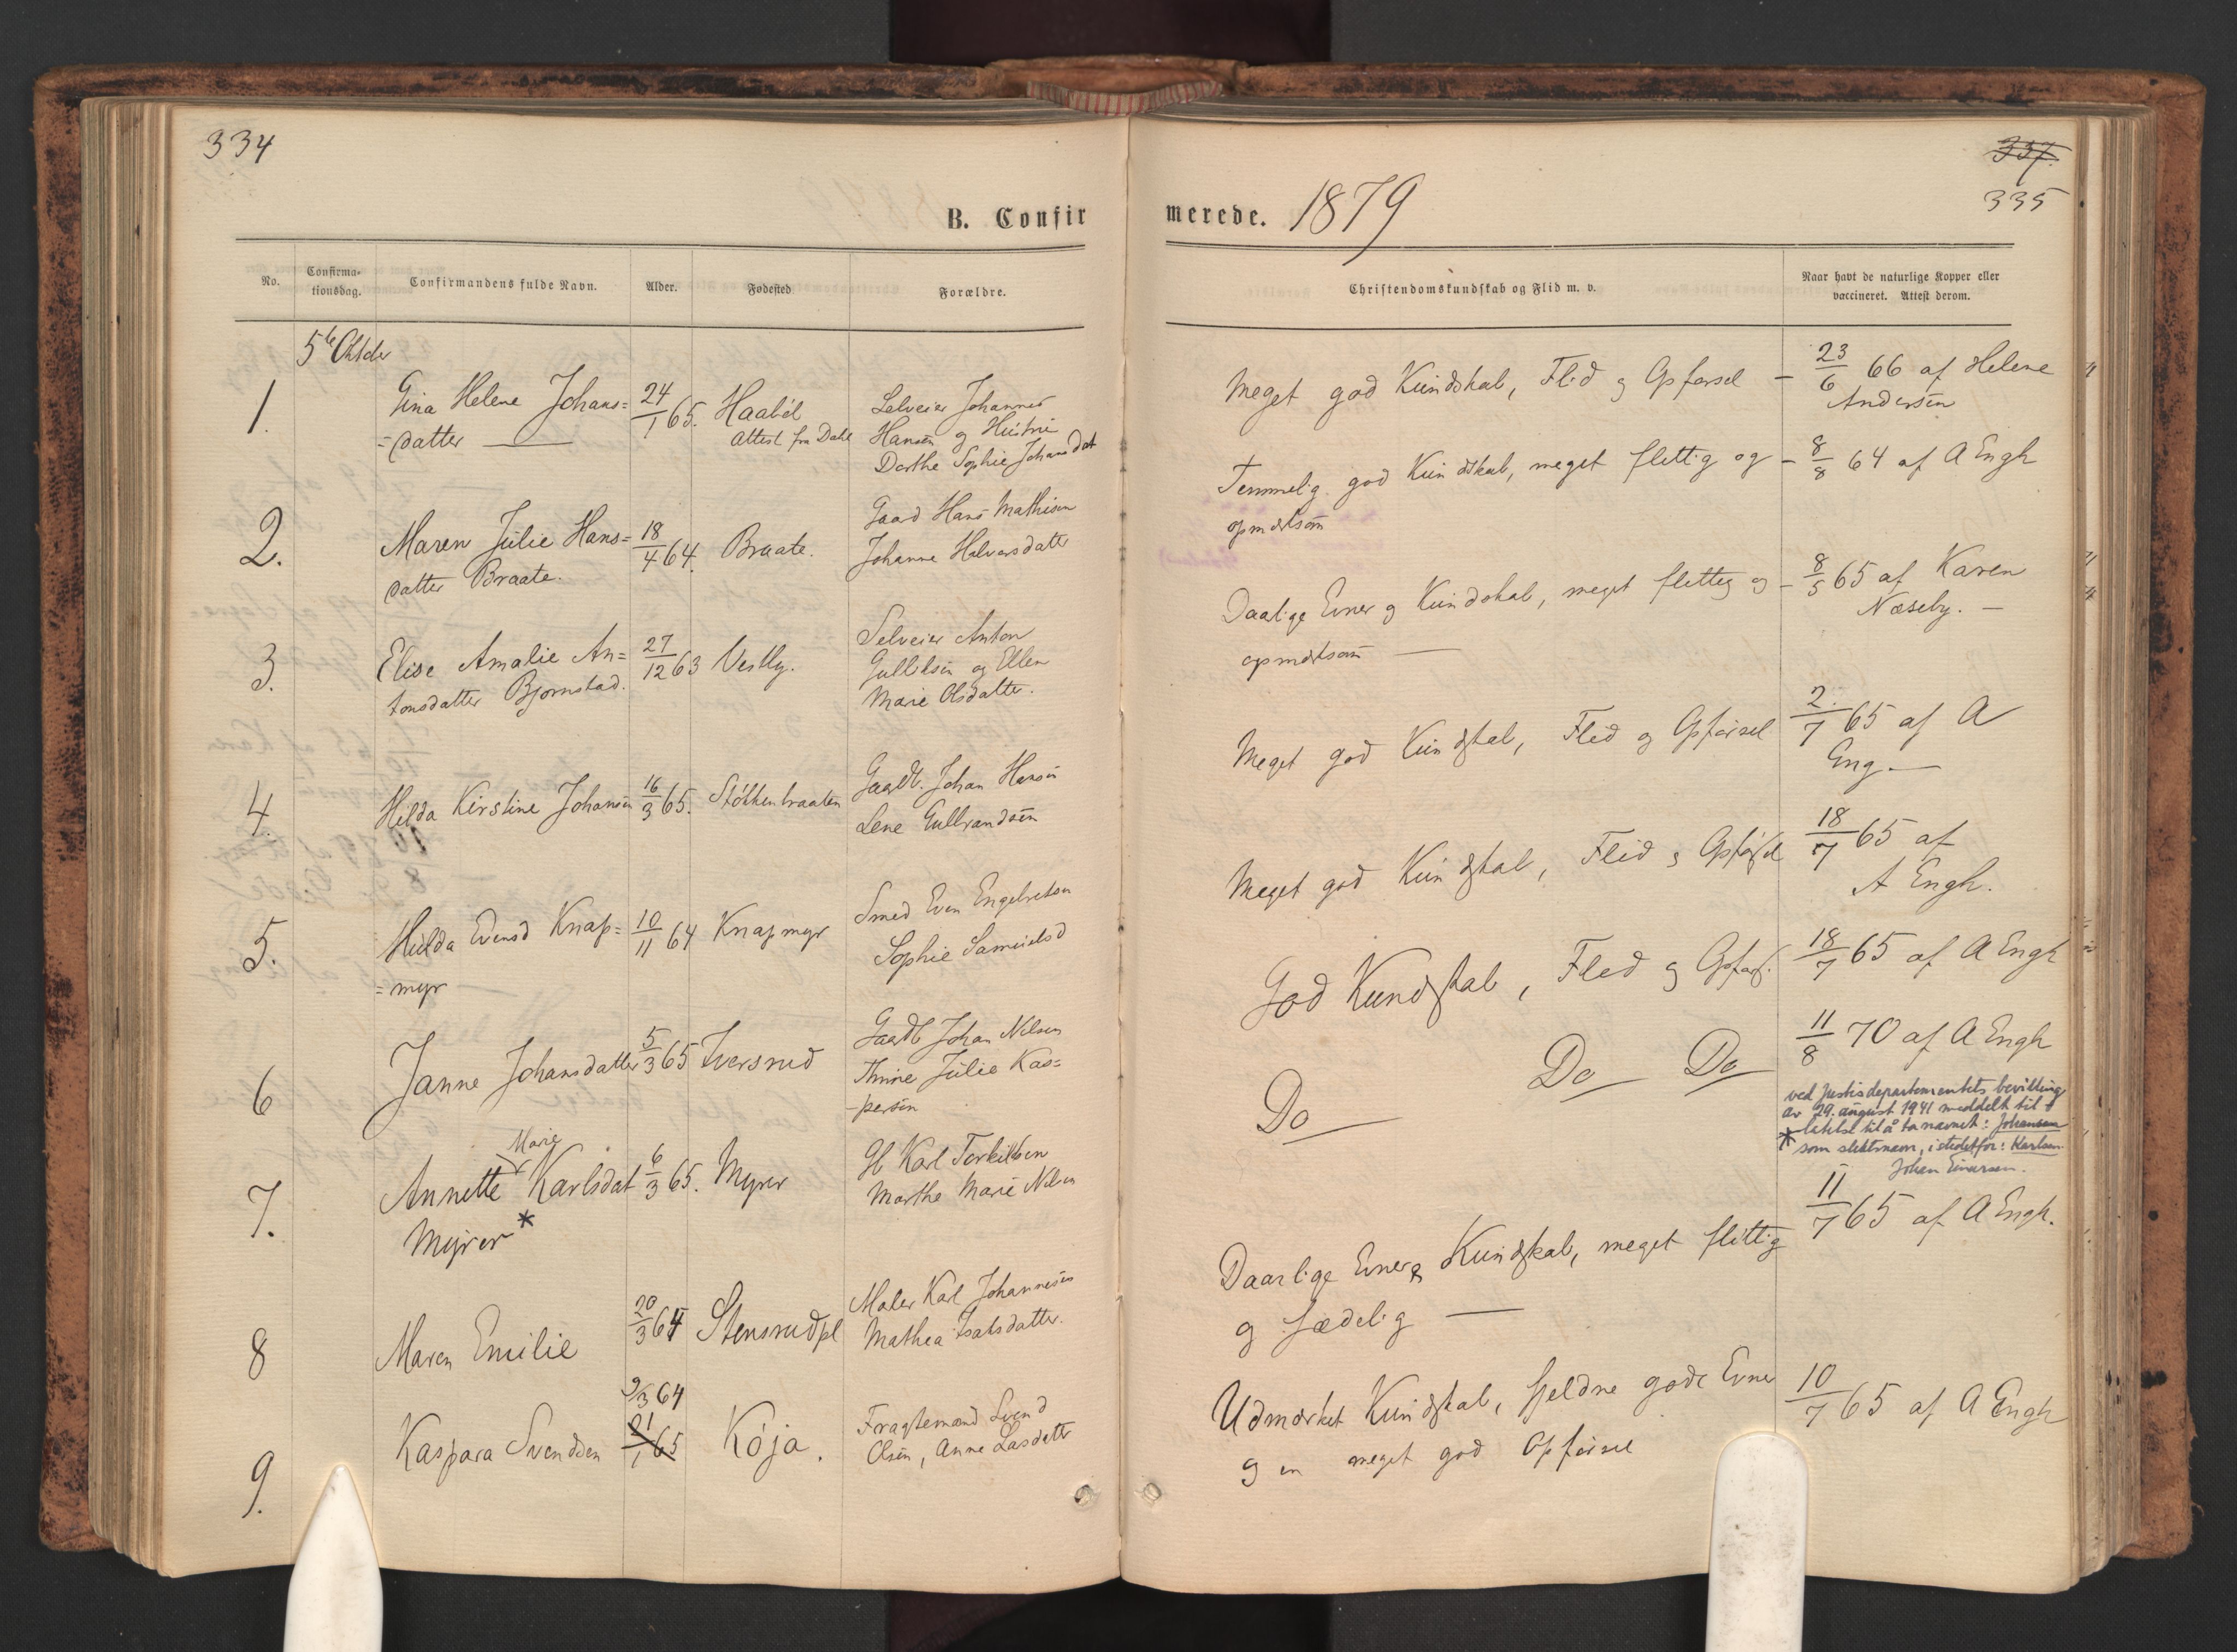 334
B. Confir
No.
Confirma-
tionsdag.
Confirmandens fulde Navn.
Alder.
Fødested
Forældre.
5te Oktbr
1.
Gina Helene Johans=
=datter
24/1 65.
Haabøl
Attest fra Dahl
Selveier Johannes
Hansen og Hustru
Dorthe Sophie Johansdat
2.
Maren Julie Hans=
datter Braate.
18/4 64.
Braate.
Gaard Hans Mathisen
Johanne Halvorsdatter
3.
Elise Amalie An=
tonsdatter Bjørnstad.
27/12 63
Vestby.
Selveier Anton
Gulliksen og Ellen
Marie Olsdatter.
4.
Hilda Kirstine Johansen
16/3 65.
Støkkenbraaten
Gaardb. Johan Hansen
Lene Gulbrandsen
5.
Hulda Evensd Knap=
=myr
10/11 64
Knapmyr
Smed Even Engebretsen
Sophie Samuelsd
6
Janne Johansdatter
5/3 65
Iversrud
Gaardb Johan Nilsen
Thrine Julie Kas=
-persen
7.
Marie
Annette Karlsdat
Myrer*
6/3 65.
Myrer
Gb Karl Terkildsen
Marthe Marie Nilsen
8
Maren Emilie
20/3 64
Stensrudpl
Maler Karl Johannesen
Mathea Isaksdatter.
9.
Kaspara Svendsen
9/3 64
21/1 65
Köja.
Fragtemand Svend
Olsen, Anne Larsdatter
337.
335
merede. 1879
Christendomskundskab og Flid m. v.
Naar havt de naturlige Kopper eller
vaccineret. Attest derom.
Meget god Kundskab, Flid og Opførsel –
23/6 66 af Helene
Andersen
Temmelig god Kundskab, meget flittig og –
opmærksom
8/8 64 af A Engh
Daarlige Evner og Kundskab, meget flittig og –
opmærksom —
8/5 65 af Karen
Næseby. –
Meget god Kundskab, Flid og Opførsel
2/7 65 af A
Eng. —
Meget god Kundskab, Flid og Opførsel
18/7 65 af
A Engh.
God Kundskab, Flid og Opførs.
18/7 65 af A Engh
Do — Do — Do
11/8 70 af A Engh
ved Justisdepartementets bevilling
av 29. august 1941 meddelt til-
latelse til å ta navnet: Johansen
* som slektsnavn, istedetfor: Karlsen
Johan Einarsen.
Daarlige Evner og Kundskab, meget flittig
og sædelig —
11/7 65 af A Engh.
Udmærket Kundskab, sjeldne gode Evner
og en meget god Opførsel
10/7 65 af A Engh